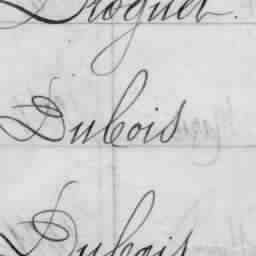 Droguet.
Dubois
Dubois